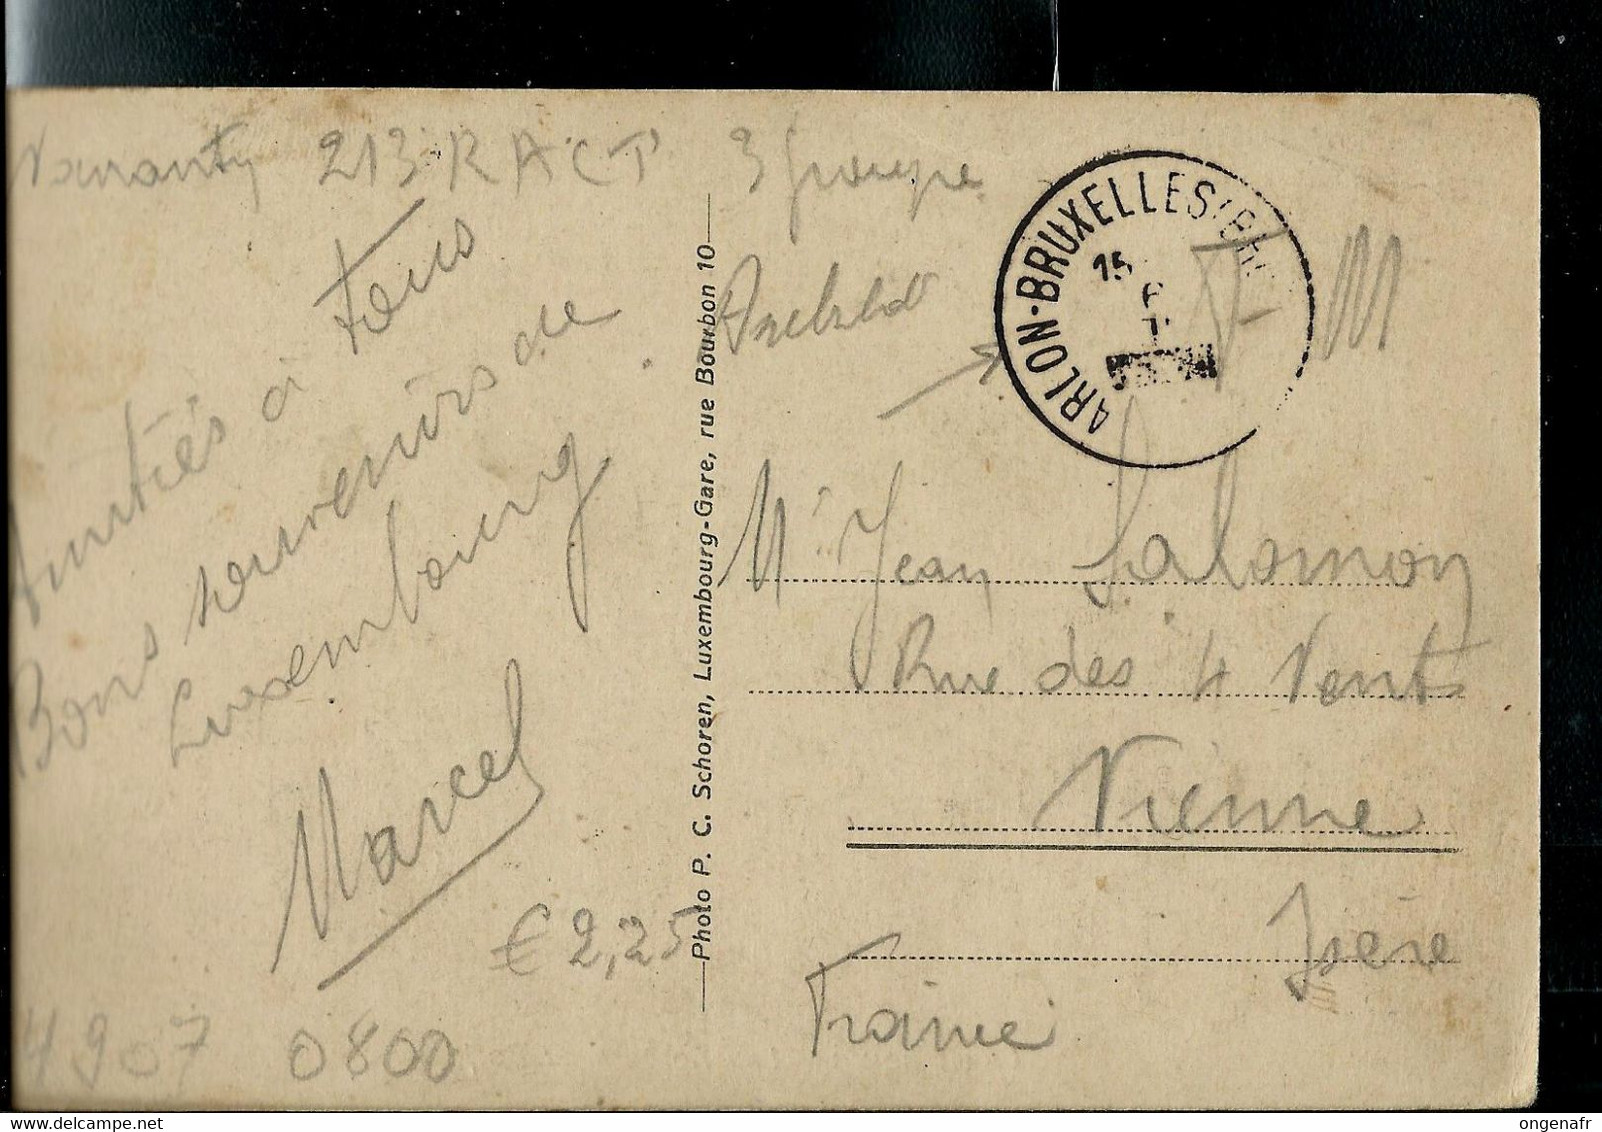 213 RACT 3 groupe
Amitiés à tous
Bons souvenirs de
Luxembourg
Marcel
€ 2,25
4907 0800
Photo P. C. Schoren, Luxembourg-Gare, rue Bourbon 10
ARLON-BRUXELLES
15
F M
Mr Jean Salomon
Rue des 4 Vents
Vienne
Isère
France
ongenafr